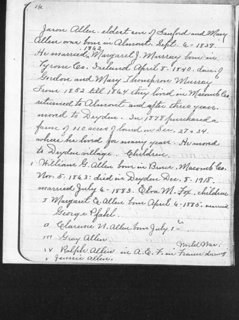 Jason Allen. eldest son of Sanford and Mary
Allen was born in Almont. Sept. 6 - 1837.
1862
He married Margaret J. Murray born in
Tyrone Co. Ireland April 8. 1840. daur of
and Mary Thompson Murray.
From 1852 till 1864 they lived in Macomb Co.
returned to Almont and after three years
moved to Dryden. In 1878 purchased a
farm of 115 acres of land in Sec. 27 & 34.
where he lived for many years. He moved
to Dryden village. Children.
William G. Allen born in Bruce, Macomb Co.
Nov. 5. 1863. died in Dryden Dec. 5. 1915.
married July 4 - 1883. Ella M. Fox. children
Margaret E Allen born April 6 - 1885. married
George Pfahl.
Clarence H. Allen born July 1
iii Guy Allen
World War.
iv Ralph Allen in A. E. F. in France during
v Jennie Allen.